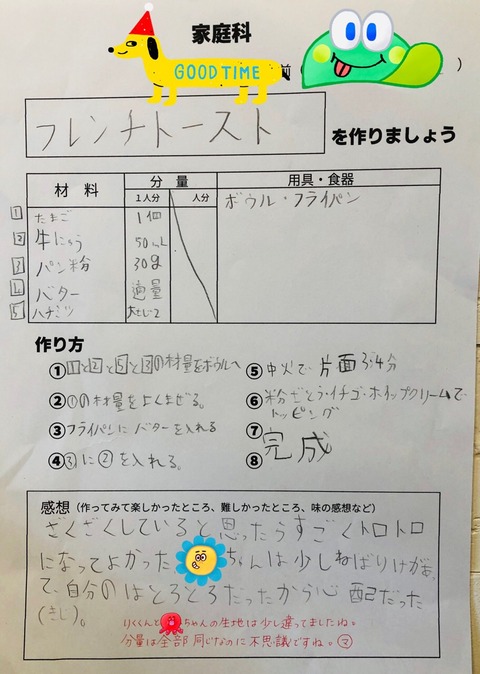 家庭科
GOOD TIME
前( )
フレンチトースト を作りましょう
材 料 分 量 用具・食器
1人分 人分
1 たまご 1個 ボウル・フライパン
2 牛にゅう 50mL
3 パン粉 30g
4 バター 適量
5 ハチミツ 大さじ2
作り方
①1と2と5と3の材量をボウルへ
②①の材量をよくまぜる。
③フライパンにバターを入れる
④③に②を入れる。
⑤中火で片面3・4分
⑥粉ざとう・イチゴ・ホイップクリームで
トッピング
⑦完成
⑧
感想(作ってみて楽しかったところ、難しかったところ、味の感想など)
ざくざくしていると思ったらすごくトロトロ
になってよかった ちゃんは少しねばりけがあっ
て、自分のはとろとろだったから心配だった
(きじ)。
りくくんと ちゃんの生地は少し違ってましたね。
分量は全部同じなのに不思議ですね。マ